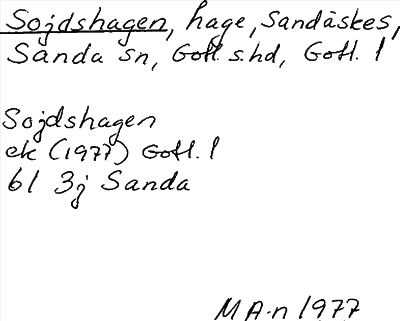 Sojdshagen, hage, Sandäskes,
Sanda sn, Gotl. s.hd, Gotl. l
Sojdshagen
ek (1977) Gotl. l
bl 3j Sanda
MA-n 1977